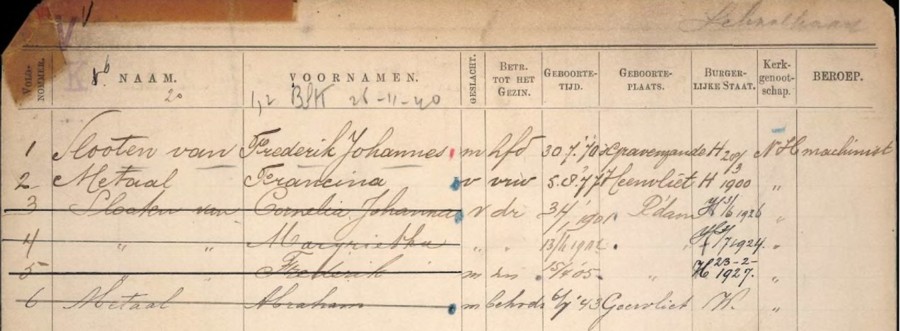 VOLG-NOMMER. NAAM. VOORNAMEN. GESLACHT. BETR. TOT HET GEZIN. GEBOORTE-TIJD. GEBOORTE-PLAATS. BURGER-LIJKE STAAT. Kerk-genoot-schap. BEROEP.
20 1,2 BSK 26-11-40
1 Slooten van Frederik Johannes m hfd 30.7.'70 's Gravenzande H 20/3 N H machinist
2 Metaal Francina v vrw Heenvliet H 1900 "
3 Slooten van Cornelia Johanna v dr 1901 R'dam H 1926 "
4 " " Margrietha " " 1902 " H 1924 "
5 " Frederik m " H 23-2-1927. "
6 Metaal Abraham m behvdr '43 Geervliet W. "